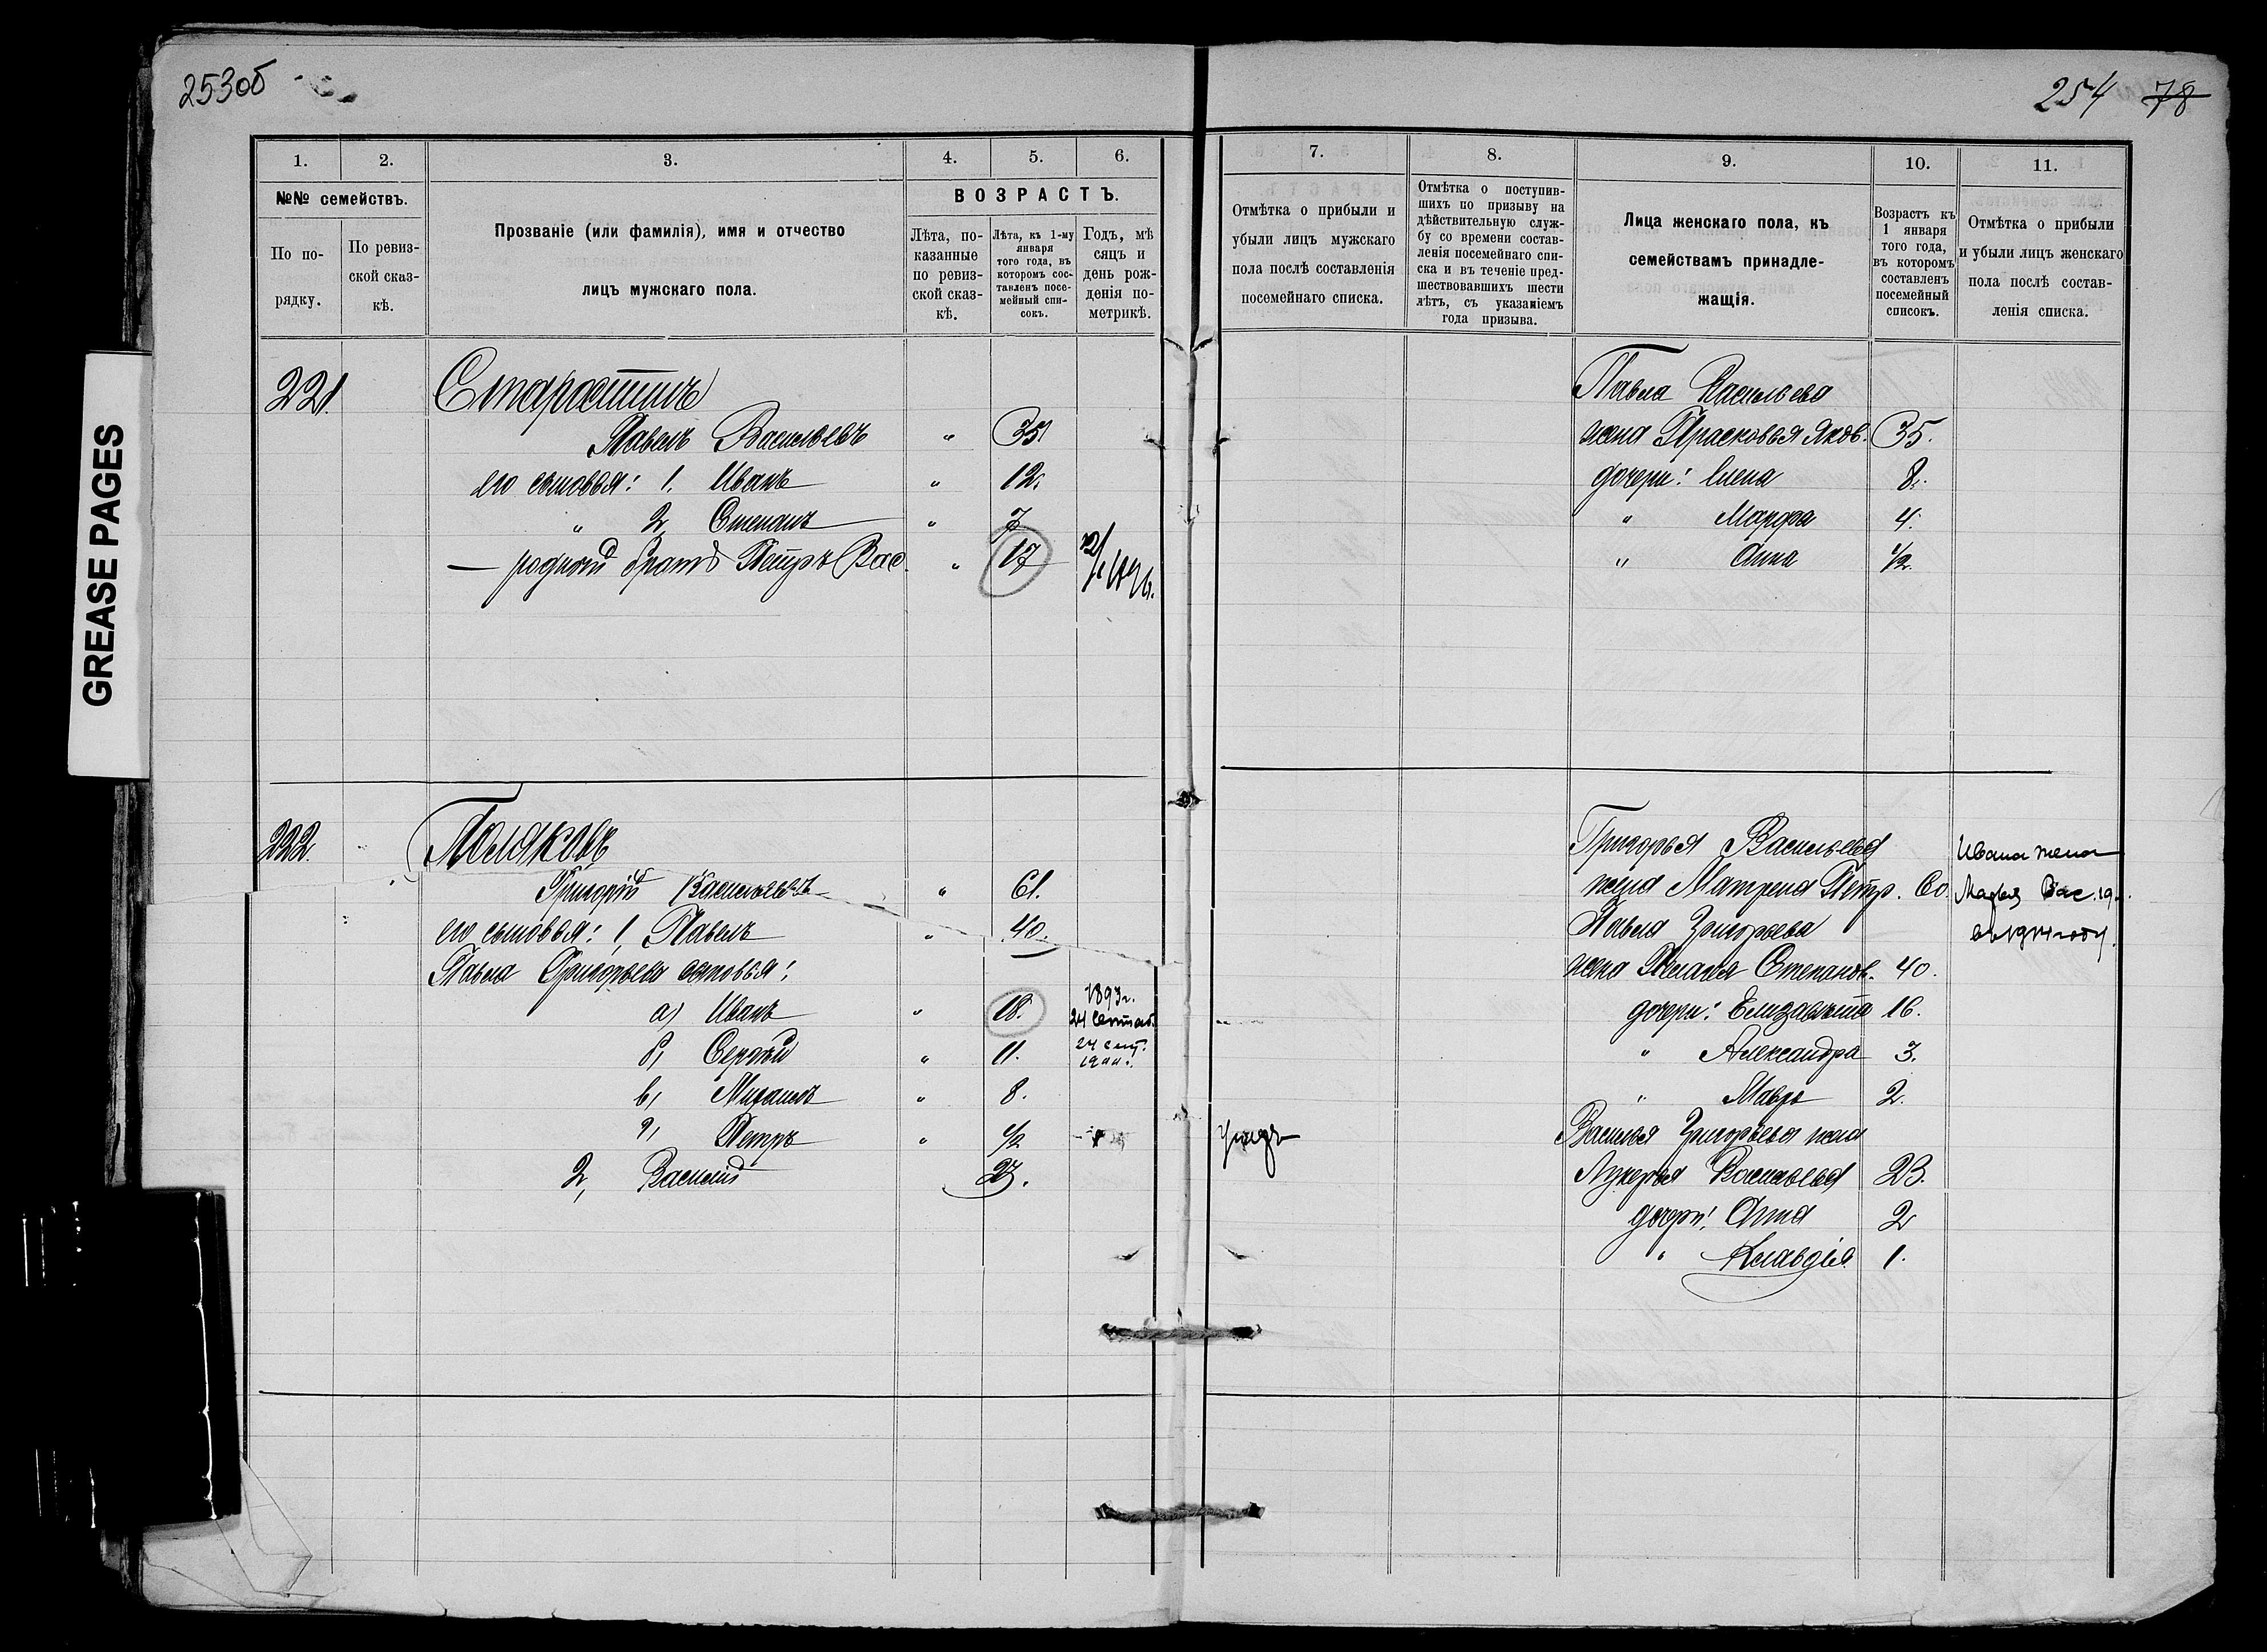 253об
254 78
GREASE PAGES
1. 2. 3. 4. 5. 6.
№№ семействъ.
По порядку.
По ревизской сказкѣ.
Прозваніе (или фамилія), имя и отчество
лицъ мужскаго пола.
ВОЗРАСТЪ.
Лѣта, показанные по ревизской сказкѣ.
Лѣта, къ 1-му января того года, въ которомъ составленъ посемейный списокъ.
Годъ, мѣсяцъ и день рожденія по метрикѣ.
221. Старостинъ
Павелъ Васильевъ " 35
его сыновья: 1. Иванъ " 12.
" 2, Степанъ " 7
— родной братъ Петръ Вас. " 17
222. Поляковъ
Григорій Васильевъ " 61.
его сыновья: 1, Павелъ " 40.
Павла Григорьева сыновья:
а) Иванъ " 18. 1893г. 24 Сентяб.
б, Сергѣй " 11. 24 сент.
в, Михаилъ " 8.
г, Петръ " 1/2
2, Василій 27.
7. 8. 9. 10. 11.
Отмѣтка о прибыли и
убыли лицъ мужскаго
пола послѣ составленія
посемейнаго списка.
Отмѣтка о поступив-
шихъ по призыву на
дѣйствительную служ-
бу со времени состав-
ленія посемейнаго спи-
ска и въ теченіе пред-
шествовавшихъ шести
лѣтъ, съ указаніемъ
года призыва.
Лица женскаго пола, къ
семействамъ принадле-
жащія.
Возрастъ къ
1 января
того года,
въ которомъ
составленъ
посемейный
списокъ.
Отмѣтка о прибыли
и убыли лицъ женскаго
пола послѣ состав-
ленія списка.
Павла Васильева
жена Прасковья Яков. 35.
дочери: Елена 8.
" Марфа 4.
" Анна 1/2.
Григорья Васильева
жена Матрена Петр. 60.
Павла Григорьева
жена Пелагея Степанов. 40.
дочери: Елизавета 16.
" Александра 3.
" Мавра 2.
Василья Григорьева жена
Лукерья Васильева 23.
дочери: Анна 2
" Клавдія 1.
Ивана жена
Марья Вас. 19.